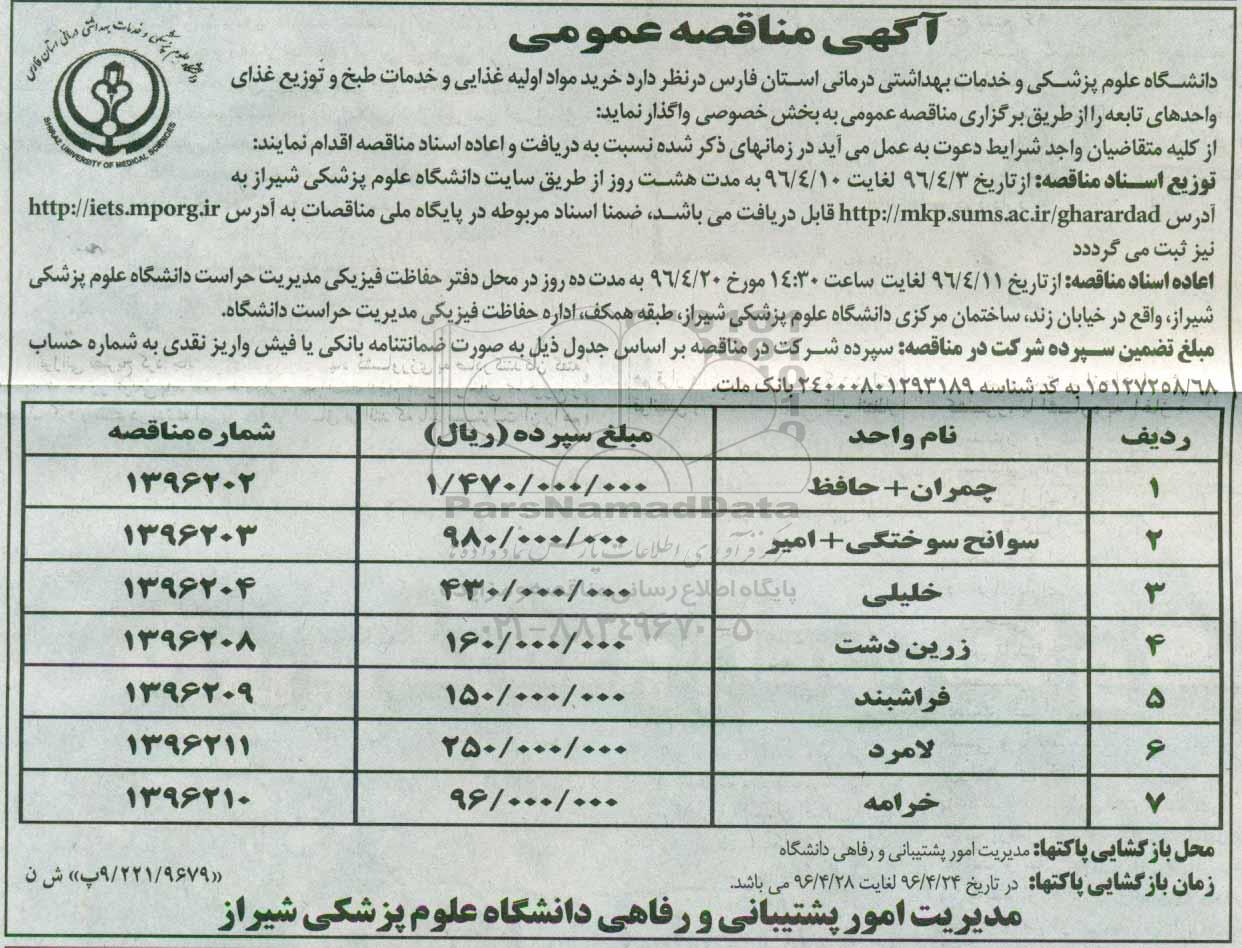 آگهی مناقصه عمومی
دانشگاه علوم پزشکی و خدمات بهداشتی درمانی استان فارس
SHIRAZ UNIVERSITY OF MEDICAL SCIENCES
دانشگاه علوم پزشکی و خدمات بهداشتی درمانی استان فارس درنظر دارد خرید مواد اولیه غذایی و خدمات طبخ و توزیع غذای
واحدهای تابعه را از طریق برگزاری مناقصه عمومی به بخش خصوصی واگذار نماید:
از کلیه متقاضیان واجد شرایط دعوت به عمل می آید در زمانهای ذکر شده نسبت به دریافت و اعاده اسناد مناقصه اقدام نمایند:
توزیع اسناد مناقصه: از تاریخ ۹۶/٤/۳ لغایت ۹۶/٤/۱۰ به مدت هشت روز از طریق سایت دانشگاه علوم پزشکی شیراز به
آدرس http://mkp.sums.ac.ir/gharardad قابل دریافت می باشد، ضمنا اسناد مربوطه در پایگاه ملی مناقصات به آدرس http://iets.mporg.ir
نیز ثبت می گرددد
اعاده اسناد مناقصه: از تاریخ ۹۶/٤/۱۱ لغایت ساعت ۱٤:۳۰ مورخ ۹۶/٤/۲۰ به مدت ده روز در محل دفتر حفاظت فیزیکی مدیریت حراست دانشگاه علوم پزشکی
شیراز، واقع در خیابان زند، ساختمان مرکزی دانشگاه علوم پزشکی شیراز، طبقه همکف، اداره حفاظت فیزیکی مدیریت حراست دانشگاه.
مبلغ تضمین سپرده شرکت در مناقصه: سپرده شرکت در مناقصه بر اساس جدول ذیل به صورت ضمانتنامه بانکی یا فیش واریز نقدی به شماره حساب
۱۵۱۲۷۲۵۸/۶۸ به کد شناسه ۲٤۰۰۰۸۰۱۲۹۳۱۸۹ بانک ملت.
ردیف نام واحد مبلغ سپرده (ریال) شماره مناقصه
۱ چمران+ حافظ ۱/۴۷۰/۰۰۰/۰۰۰ ۱۳۹۶۲۰۲
۲ سوانح سوختگی+ امیر ۹۸۰/۰۰۰/۰۰۰ ۱۳۹۶۲۰۳
۳ خلیلی ۴۳۰/۰۰۰/۰۰۰ ۱۳۹۶۲۰۴
۴ زرین دشت ۱۶۰/۰۰۰/۰۰۰ ۱۳۹۶۲۰۸
۵ فراشبند ۱۵۰/۰۰۰/۰۰۰ ۱۳۹۶۲۰۹
۶ لامرد ۲۵۰/۰۰۰/۰۰۰ ۱۳۹۶۲۱۱
۷ خرامه ۹۶/۰۰۰/۰۰۰ ۱۳۹۶۲۱۰
ParsNamadData
۰۲۱-۸۸۳۴۹۶۷۰-۵
محل بازگشایی پاکتها: مدیریت امور پشتیبانی و رفاهی دانشگاه
زمان بازگشایی پاکتها: در تاریخ ۹۶/۴/۲۴ لغایت ۹۶/۴/۲۸ می باشد.
«۹/۲۲۱/۹۶۷۹پ» ش ن
مدیریت امور پشتیبانی و رفاهی دانشگاه علوم پزشکی شیراز